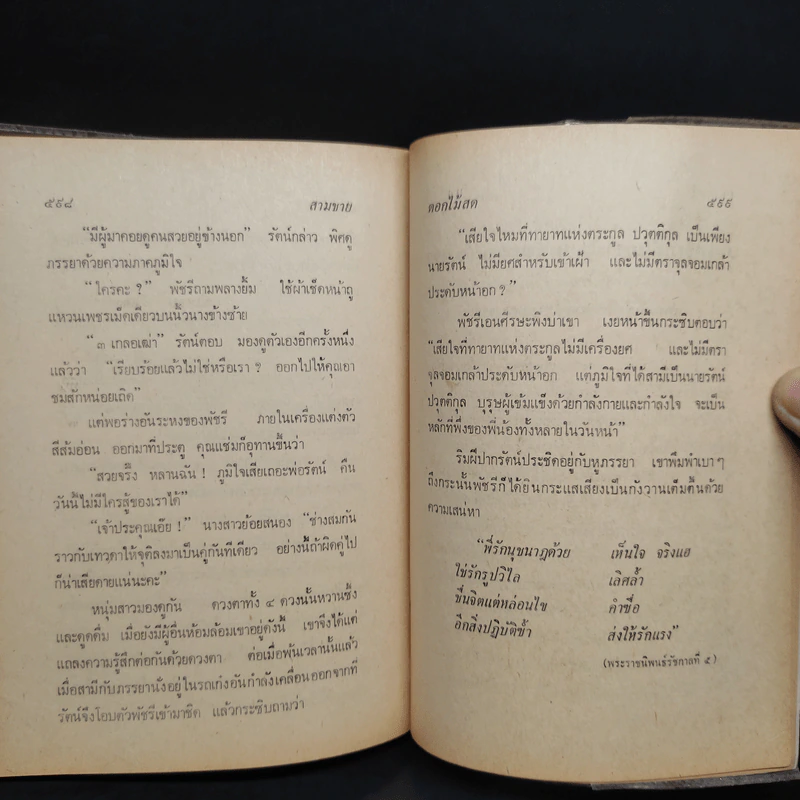 ๕๙๘ สามชาย
“มีผู้มาคอยดูคนสวยอยู่ข้างนอก” รัตน์กล่าว พิศดู
ภรรยาด้วยความภาคภูมิใจ
“ใครคะ ?” พัชรีถามพลางยิ้ม ใช้ผ้าเช็ดหน้าถู
แหวนเพชรเม็ดเดียวบนนิ้วนางข้างซ้าย
“๓ เกลอเฒ่า” รัตน์ตอบ มองดูตัวเองอีกครั้งหนึ่ง
แล้วว่า “เรียบร้อยแล้วไม่ใช่หรือเรา ? ออกไปให้คุณอา
ชมสักหน่อยเถิด”
แต่พอร่างอันระหงของพัชรี ภายในเครื่องแต่งตัว
สีส้มอ่อน ออกมาที่ประตู คุณแช่มก็อุทานขึ้นว่า
“สวยจริง หลานฉัน ! ภูมิใจเสียเถอะพ่อรัตน์ คืน
วันนี้ไม่มีใครสู้ของเราได้”
“เจ้าประคุณเอ๊ย !” นางสาวย้อยสนอง “ช่างสมกัน
ราวกับเทวดาให้จุติลงมาเป็นคู่กันทีเดียว อย่างนี้ถ้าผิดคู่ไป
ก็น่าเสียดายแน่นะคะ”
หนุ่มสาวมองดูกัน ดวงตาทั้ง ๔ ดวงนั้นหวานซึ้ง
และดูดดื่ม เมื่อยังมีผู้อื่นห้อมล้อมเขาอยู่ดังนี้ เขาจึงได้แต่
แถลงความรู้สึกต่อกันด้วยดวงตา ต่อเมื่อพ้นเวลานั้นแล้ว
เมื่อสามีกับภรรยานั่งอยู่ในรถเก๋งอันกำลังเคลื่อนออกจากที่
รัตน์จึงโอบตัวพัชรีเข้ามาชิด แล้วกระซิบถามว่า
ดอกไม้สด ๕๙๙
“เสียใจไหมที่ทายาทแห่งตระกูล ปวุตติกุล เป็นเพียง
นายรัตน์ ไม่มียศสำหรับเข้าเฝ้า และไม่มีตราจุลจอมเกล้า
ประดับหน้าอก ?”
พัชรีเอนศีรษะพิงบ่าเขา เงยหน้าขึ้นกระซิบตอบว่า
“เสียใจที่ทายาทแห่งตระกูลไม่มีเครื่องยศ และไม่มีตรา
จุลจอมเกล้าประดับหน้าอก แต่ภูมิใจที่ได้สามีเป็นนายรัตน์
ปวุตติกุล บุรุษผู้เข้มแข็งด้วยกำลังกายและกำลังใจ จะเป็น
หลักที่พึ่งของพี่น้องทั้งหลายในวันหน้า”
ริมฝีปากรัตน์ประชิดอยู่กับหูภรรยา เขาพึมพำเบา ๆ
ถึงกระนั้นพัชรีก็ได้ยินกระแสเสียงเป็นกังวานเต็มตื้นด้วย
ความเสน่หา
“พี่รักนุชนาฏด้วย เห็นใจ จริงแฮ
ใช่รักรูปวิไล เลิศล้ำ
ชื่นจิตแต่หล่อนไข คำชื่อ
อีกสิ่งปฏิบัติซ้ำ ส่งให้รักแรง”
(พระราชนิพนธ์รัชกาลที่ ๕)